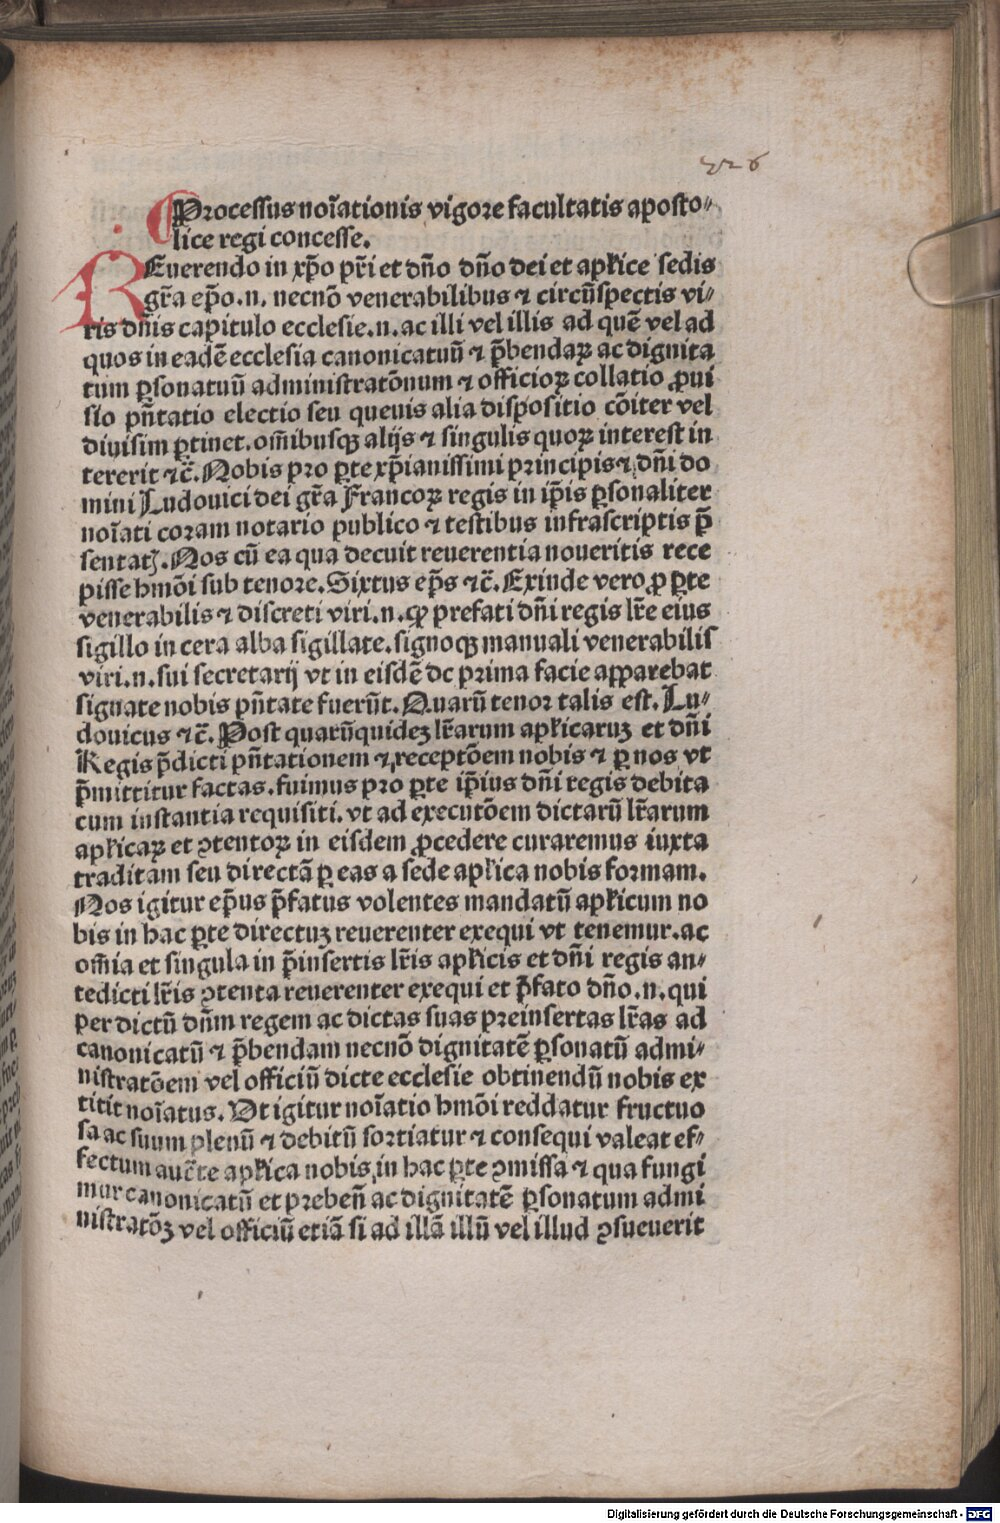 326
Processus noı̄ationis vigore facultatis aposto⸗
lice regi concesse.
REuerendo in xp̄o pr̄i et dn̄o dn̄o dei et apl̄ice sedis
gr̄a ep̄o.n. necnō venerabilibus ⁊ circūspectis vi⸗
ris dn̄is capitulo ecclesie.n. ac illi vel illis ad quē vel ad
quos in eadē ecclesia canonicatuū ⁊ p̄bendaꝝ ac dignita
tum ꝑsonatuū administratōnum ⁊ officioꝝ collatio ꝓui
sio pn̄tatio electio seu queuis alia dispositio cōiter vel
diuisim ꝑtinet. om̄ibusqꝫ alijs ⁊ singulis quoꝝ interest in
tererit ⁊c̄. Nobis pro ꝑte xp̄ianissimi principis ⁊ dn̄i do
mini Ludouici dei gr̄a Francoꝝ regis in ip̄is ꝑsonaliter
noı̄ati coram notario publico ⁊ testibus infrascriptis p̄
sentatꝭ. Nos cū ea qua decuit reuerentia noueritis rece
pisse hmōi sub tenore. Sixtus ep̄s ⁊c̄. Exinde vero ꝓ ꝑte
venerabilis ⁊ discreti viri.n. ꝙ prefati dn̄i regis lr̄e eius
sigillo in cera alba sigillate. signoqꝫ manuali venerabilis
viri.n. sui secretarij vt in eisdē dc prima facie apparebat
signate nobis pn̄tate fuerūt. Quarū tenor talis est. Lu⸗
douicus ⁊c̄. Post quarūquidēꝫ lr̄arum apl̄icaruꝫ et dn̄i
Regis p̄dicti pn̄tationem ⁊ receptōem nobis ⁊ ꝑ nos vt
p̄mittitur factas. fuimus pro ꝑte ip̄ius dn̄i regis debita
cum instantia requisiti. vt ad executōem dictarū lr̄arum
apl̄icaꝝ et ꝯtentoꝝ in eisdem ꝓcedere curaremus iuxta
traditam seu directā ꝑ eas a sede apl̄ica nobis formam.
Nos igitur ep̄us p̄fatus volentes mandatū apl̄icum no
bis in hac ꝑte directuꝫ reuerenter exequi vt tenemur. ac
om̄ia et singula in p̄insertis lr̄is apl̄icis et dn̄i regis an⸗
tedicti lr̄is ꝯtenta reuerenter exequi et p̄fato dn̄o.n. qui
per dictū dn̄m regem ac dictas suas preinsertas lr̄as ad
canonicatū ⁊ p̄bendam necnō dignitatē ꝑsonatū admi⸗
nistratōem vel officiū dicte ecclesie obtinendū nobis ex
titit noı̄atus. Vt igitur noı̄atio hmōi reddatur fructuo
sa ac suum plenū ⁊ debitū sortiatur ⁊ consequi valeat ef⸗
fectum auc̄te apl̄ica nobis in hac ꝑte ꝯmissa ⁊ qua fungi
mur canonicatū et prebeñ ac dignitatē ꝑsonatum admi
nistratōꝫ vel officiū etiā si ad illā illū vel illud ꝯsueuerit
Digitalisierung gefördert durch die Deutsche Forschungsgemeinschaft - DFG